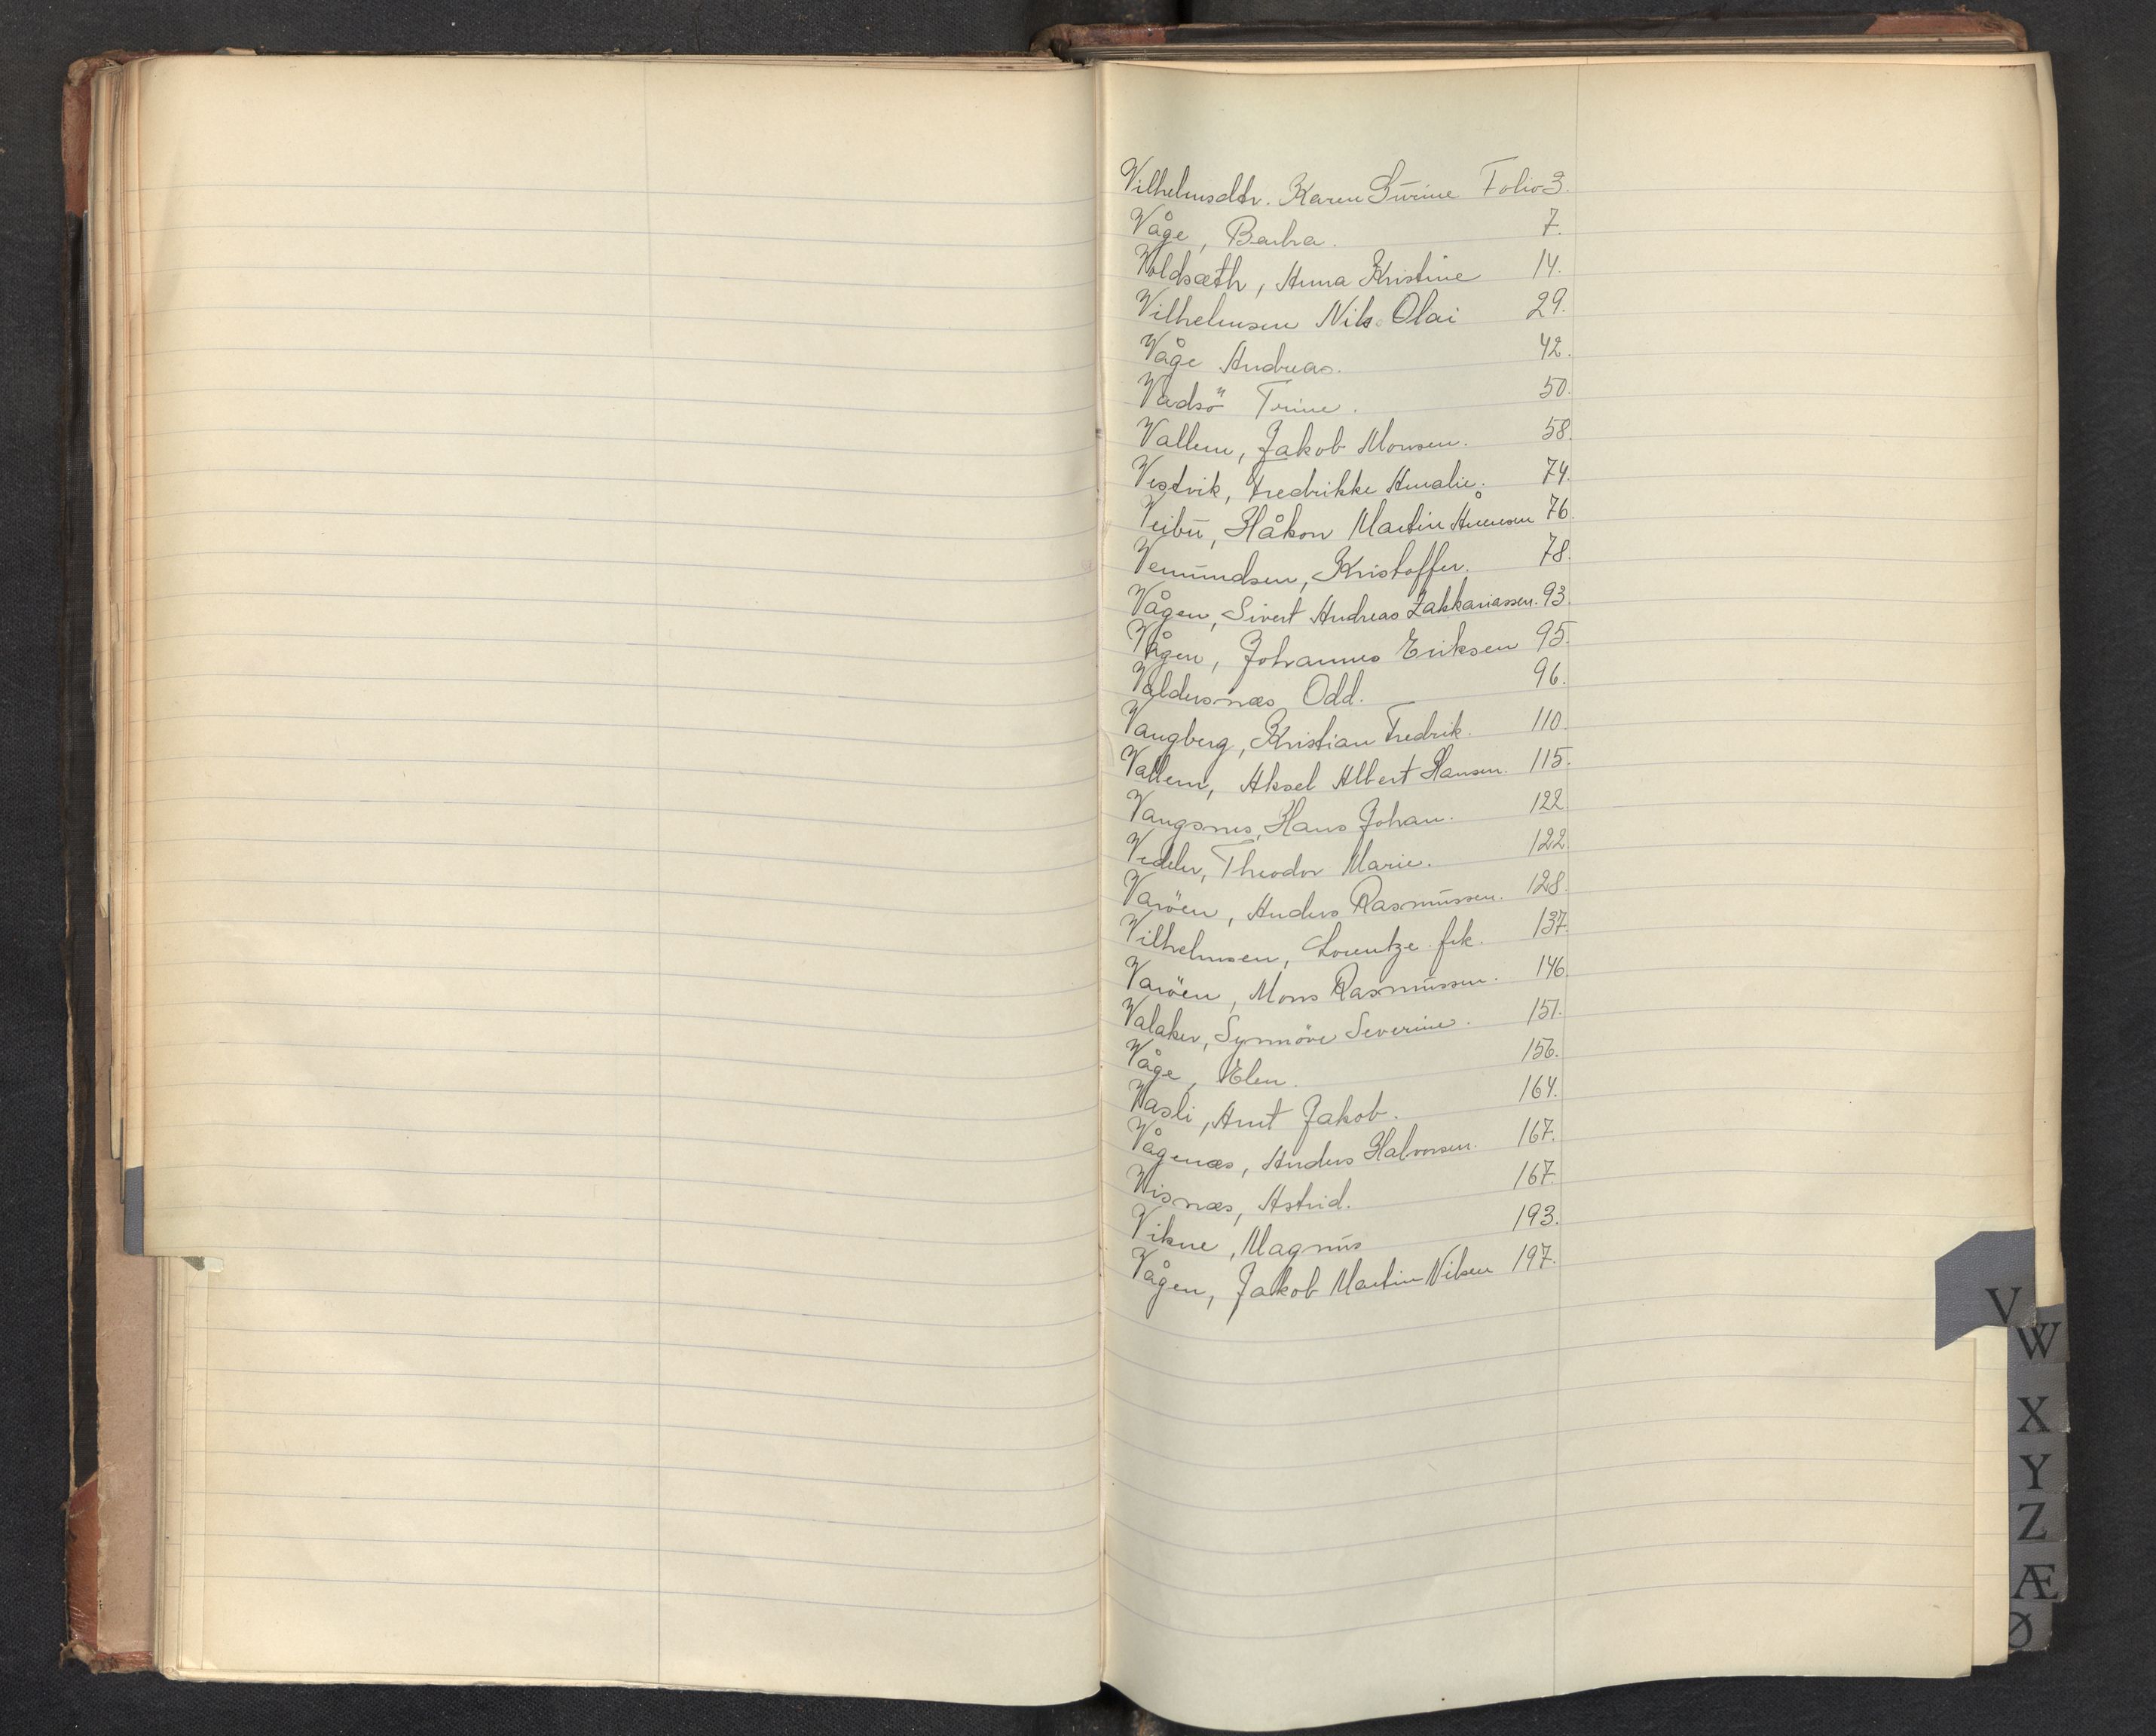 Vilhelmsdtr. Karen Gurine Folio 3.
Våge, Barbra. 7.
Voldsæth, Anna Kristine 14.
Vilhelmsen Nils Olai 29.
Våge Andreas. 42.
Vadsö Trine. 50.
Vallem, Jakob Monsen. 58.
Vestvik, Fredrikke Amalie. 74.
Veibu, Håkon Martin 76.
Vemundsen, Kristoffer. 78.
Vågen, Sivert Andreas Zakkariassen. 93.
Vågen, Johannes Eriksen 95.
Valdersnæs Odd. 96.
Vangberg, Kristian Fredrik. 110.
Vallem, Aksel Albert Hansen. 115.
Vangsnes, Hans Johan. 122.
Vedeler, Theodor Marie. 122.
Varöen, Anders Rasmussen. 128.
Vilhelmsen, Lorentze frk. 137.
Varöen, Mons Rasmussen. 146.
Valaker, Synnöve Severine. 151.
Våge, Elen. 156.
Vasli, Arnt Jakob. 164.
Vågenæs, Anders Halvorsen. 167.
Visnæs, Astrid. 167.
Vikne, Magnus 193.
Vågen, Jakob Martin Nilsen 197.
V
W
X
Y
Z
Æ
Ø